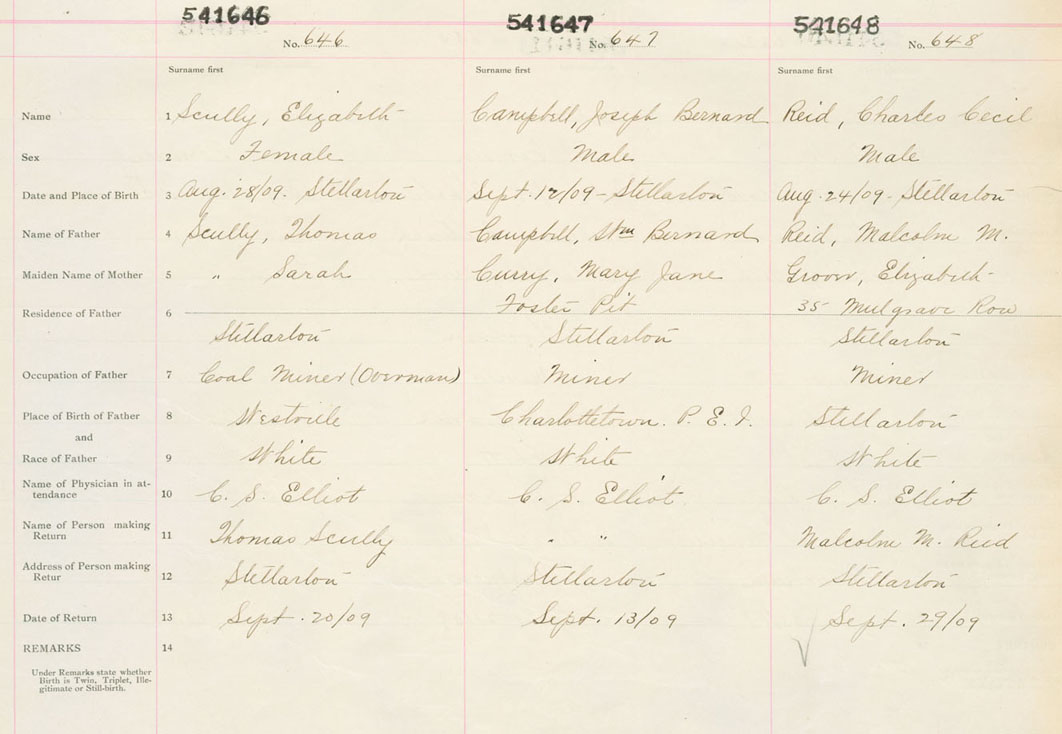 541646 541647 541648
No. 646 No. 647 No. 648
Surname first Surname first Surname first
Name 1 Scully, Elizabeth Campbell, Joseph Bernard Reid, Charles Cecil
Sex 2 Female Male Male
Date and Place of Birth 3 Aug. 28/09. Stellarton Sept. 12/09 - Stellarton Aug. 24/09 - Stellarton
Name of Father 4 Scully, Thomas Campbell, Wm Bernard Reid, Malcolm M.
Maiden Name of Mother 5 " Sarah Curry, Mary Jane Groom, Elizabeth
Foster Pit 35 Mulgrave Row
Residence of Father 6
Stellarton Stellarton Stellarton
Occupation of Father 7 Coal Miner (Overman) Miner Miner
Place of Birth of Father 8 Westville Charlottetown. P. E. I. Stellarton
and
Race of Father 9 White White White
Name of Physician in at-
tendance 10 C. S. Elliot C. S. Elliot C. S. Elliot
Name of Person making
Return 11 Thomas Scully " " Malcolm M. Reid
Address of Person making
Retur 12 Stellarton Stellarton Stellarton
Date of Return 13 Sept. 20/09 Sept. 13/09 Sept. 29/09
REMARKS 14
Under Remarks state whether
Birth is Twin, Triplet, Ille-
gitimate or Still-birth.